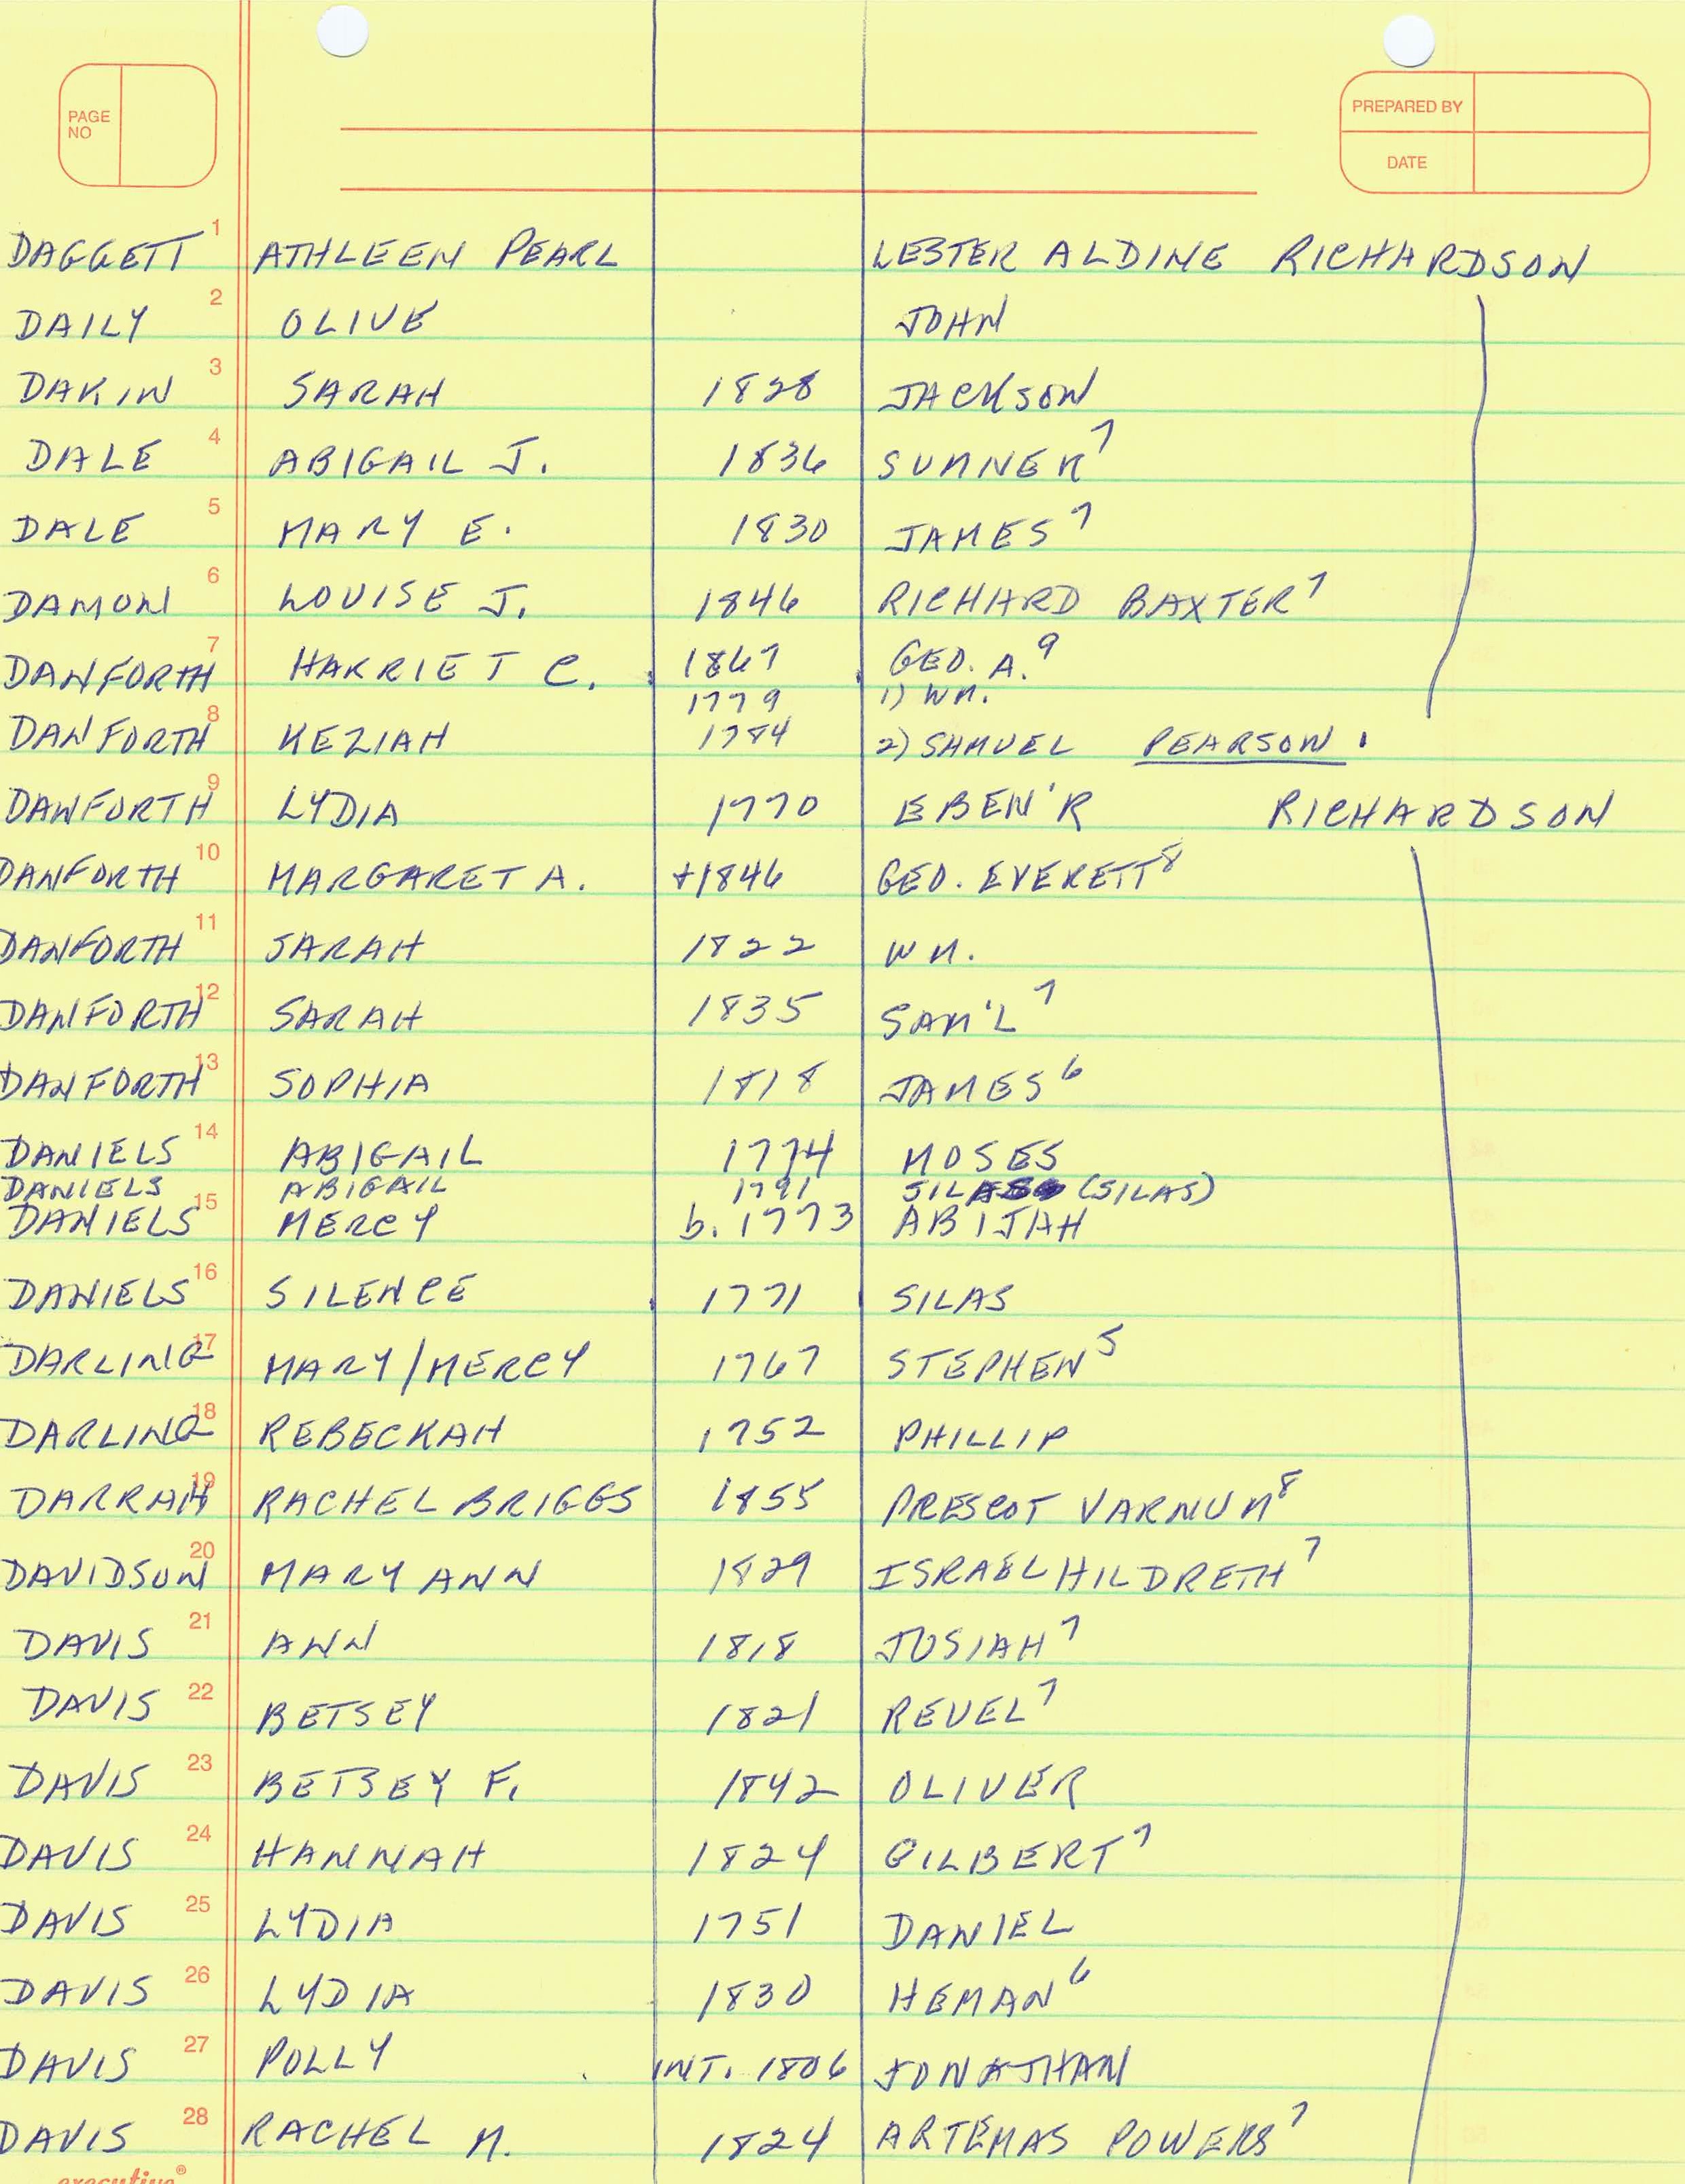 PAGE NO
PREPARED BY
DATE
DAGGETT 1 ATHLEEN PEARL LESTER ALDINE RICHARDSON
DAILY 2 OLIVE JOHN
DAKIN 3 SARAH 1828 JACKSON
DALE 4 ABIGAIL J. 1836 SUMNER 7
DALE 5 MARY E. 1830 JAMES 7
DAMON 6 LOUISE J. 1846 RICHARD BAXTER 7
DANFORTH 7 HARRIET C. 1867 GEO. A. 9
1779 1) WM.
DANFORTH 8 KEZIAH 1784 2) SAMUEL PEARSON
DANFORTH 9 LYDIA 1770 EBEN'R RICHARDSON
DANFORTH 10 MARGARET A. +1846 GEO. EVERETT 8
DANFORTH 11 SARAH 1822 WM.
DANFORTH 12 SARAH 1835 SAM'L 7
DANFORTH 13 SOPHIA 1818 JAMES 6
DANIELS 14 ABIGAIL 1774 MOSES
DANIELS ABIGAIL 1791 SILAS (SILAS)
DANIELS 15 MERCY b. 1773 ABIJAH
DANIELS 16 SILENCE 1771 SILAS
DARLING 17 MARY/MERCY 1767 STEPHEN 5
DARLING 18 REBECKAH 1752 PHILLIP
DARRAH 19 RACHEL BRIGGS 1855 PRESCOT VARNUM 8
DAVIDSON 20 MARY ANN 1829 ISRAEL HILDRETH 7
DAVIS 21 ANN 1818 JOSIAH 7
DAVIS 22 BETSEY 1821 REUEL 7
DAVIS 23 BETSEY F. 1842 OLIVER
DAVIS 24 HANNAH 1824 GILBERT 7
DAVIS 25 LYDIA 1751 DANIEL
DAVIS 26 LYDIA 1830 HEMAN 6
DAVIS 27 POLLY INT. 1806 JONATHAN
DAVIS 28 RACHEL M. 1824 ARTEMAS POWERS 7
executive®